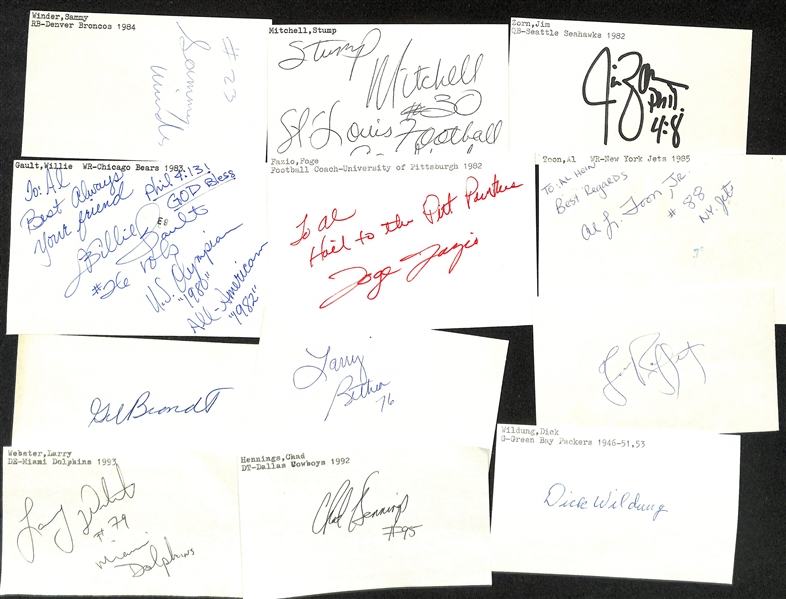 Winder,Sammy
RB-Denver Broncos 1984
#23
Sammy
Winder
Mitchell,Stump
Stump
Mitchell
#30
St Louis Football
Zorn,Jim
QB-Seattle Seahawks 1982
Jim Zorn
Phil.
4:8
Gault,Willie WR-Chicago Bears 1983
To: Al
Best Always
Your friend
Phil 4:13!
GOD Bless
Willie Gault
#26 Vols
U.S. Olympian
"1980"
All-American
"1982"
Fazio,Foge
Football Coach-University of Pittsburgh 1982
To Al
Hail to the Pitt Panthers
Foge Fazio
Toon,Al WR-New York Jets 1985
To: Al Hein
Best Regards
Al L. Toon, Jr.
#88
N.Y. Jets
Gil Brandt
Larry
Bethea
76
Webster,Larry
DE-Miami Dolphins 1993
Larry Webster
#79
Miami
Dolphins
Hennings,Chad
DT-Dallas Cowboys 1992
Chad Hennings
#95
Wildung,Dick
G-Green Bay Packers 1946-51,53
Dick Wildung